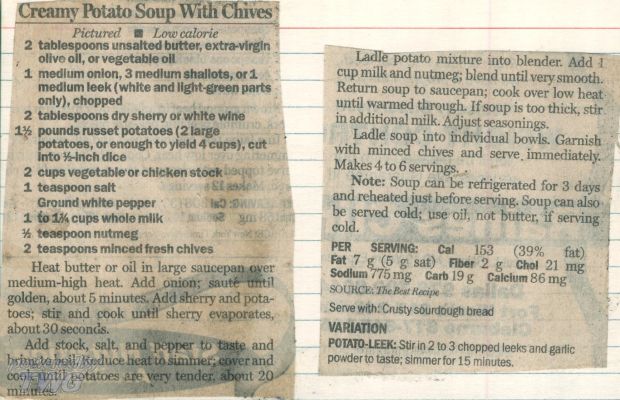 Creamy Potato Soup With Chives
Pictured ■ Low calorie
2 tablespoons unsalted butter, extra-virgin
olive oil, or vegetable oil
1 medium onion, 3 medium shallots, or 1
medium leek (white and light-green parts
only), chopped
2 tablespoons dry sherry or white wine
1½ pounds russet potatoes (2 large
potatoes, or enough to yield 4 cups), cut
into ½-inch dice
2 cups vegetable or chicken stock
1 teaspoon salt
Ground white pepper
1 to 1¼ cups whole milk
½ teaspoon nutmeg
2 teaspoons minced fresh chives
Heat butter or oil in large saucepan over
medium-high heat. Add onion; sauté until
golden, about 5 minutes. Add sherry and pota-
toes; stir and cook until sherry evaporates,
about 30 seconds.
Add stock, salt, and pepper to taste and
bring to boil. Reduce heat to simmer; cover and
cook until potatoes are very tender, about 20
minutes.
Ladle potato mixture into blender. Add 1
cup milk and nutmeg; blend until very smooth.
Return soup to saucepan; cook over low heat
until warmed through. If soup is too thick, stir
in additional milk. Adjust seasonings.
Ladle soup into individual bowls. Garnish
with minced chives and serve immediately.
Makes 4 to 6 servings.
Note: Soup can be refrigerated for 3 days
and reheated just before serving. Soup can also
be served cold; use oil, not butter, if serving
cold.
PER SERVING: Cal 153 (39% fat)
Fat 7 g (5 g sat) Fiber 2 g Chol 21 mg
Sodium 775 mg Carb 19 g Calcium 86 mg
SOURCE: The Best Recipe
Serve with: Crusty sourdough bread
VARIATION
POTATO-LEEK: Stir in 2 to 3 chopped leeks and garlic
powder to taste; simmer for 15 minutes.